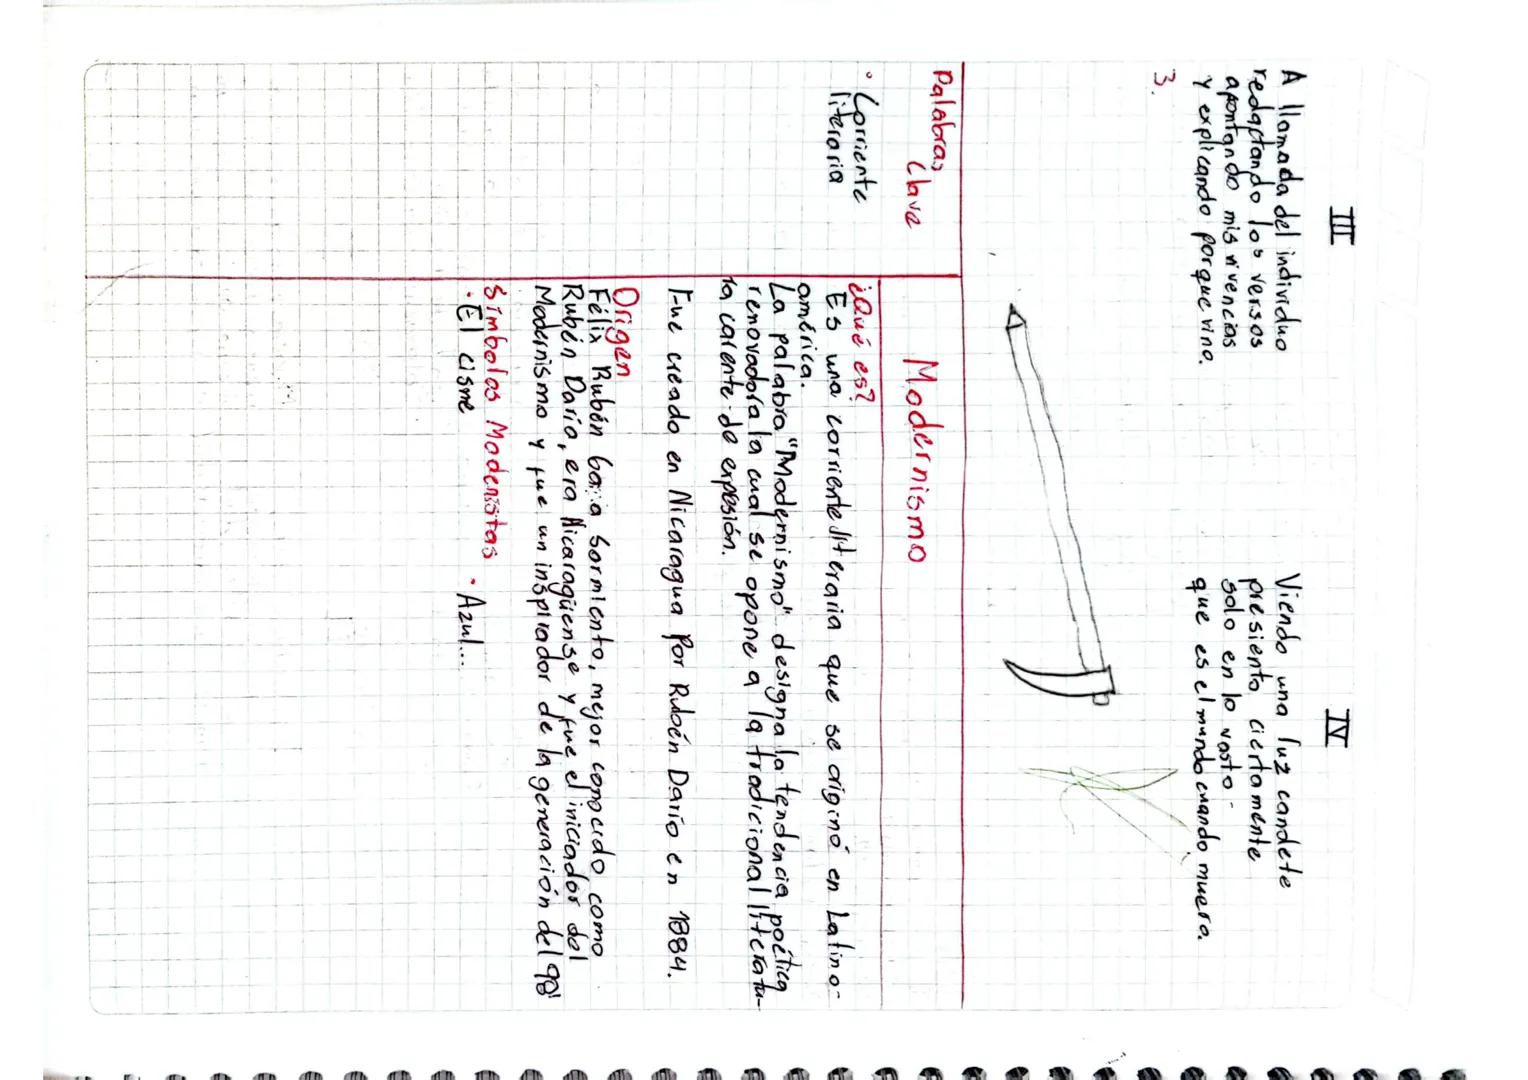 III
A llamada del individuo
redaptando los versos
apontando mis vivencias
y explicando porque vino.
3.
IV
Viendo una luz candete
presiento ciertamente
solo en lo vasto -
que es el mundo cuando muera.
Palabras
Clave
• Corriente
literaria
Modernismo
¿Qué es?
Es una corriente literaria que se originó en Latino-
américa.
La palabra "Modernismo" designa la tendencia poética
renovadora la cual se opone a la tradicional literatu-
ra carente de expesión.
Fue creado en Nicaragua por Rubén Darío en 1884.
Origen
Félix Rubén Sarmiento, mejor conocido como
Rubén Daría, era Nicaragüense y fue el iniciador del
Modernismo y fue un inspirador de la generación del 98'
Símbolos Modenistas
• El cisne
• Azul...